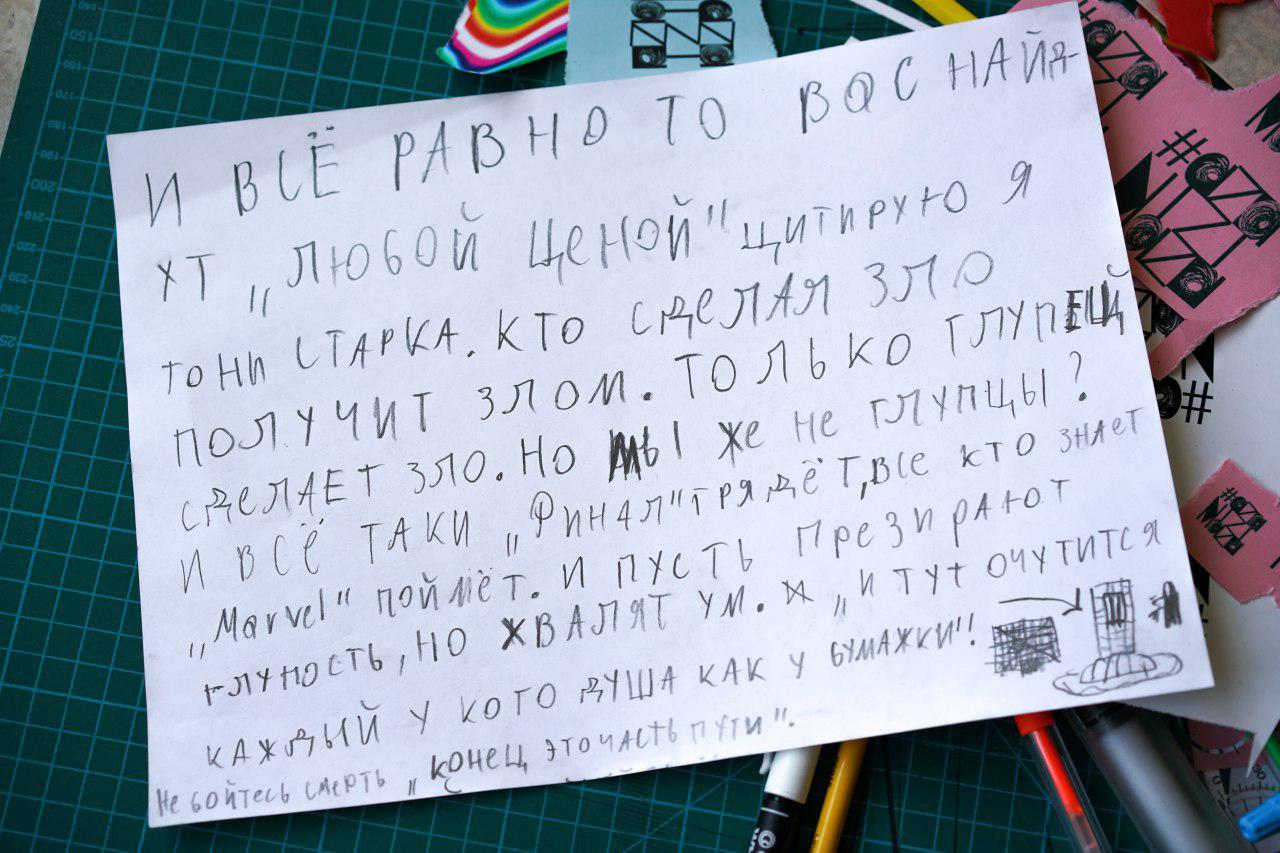 И ВСЁ РАВНО ТО ВАС НАЙД-
ХТ „ЛЮБОЙ ЦЕНОЙ" ЦИТИРУЮ Я
ТОНИ СТАРКА. КТО СДЕЛАЯ ЗЛО
ПОЛУЧИТ ЗЛОМ. ТОЛЬКО ГЛУПЕЦ
СДЕЛАЕТ ЗЛО. НО МЫ ЖЕ НЕ ГЛУПЦЫ?
И ВСЁ ТАКИ „ФИНАЛ" ГРЯДЁТ, ВСЕ КТО ЗНАЕТ
„Marvel" ПОЙМЁТ. И ПУСТЬ ПРЕЗИРАЮТ
ГЛУПОСТЬ, НО ХВАЛЯТ УМ. „И ТУТ ОЧУТИТСЯ
КАЖДЫЙ У КОГО ДУША КАК У БУМАЖКИ"!
НЕ БОЙТЕСЬ СМЕРТЬ „КОНЕЦ ЭТО ЧАСТЬ ПУТИ".